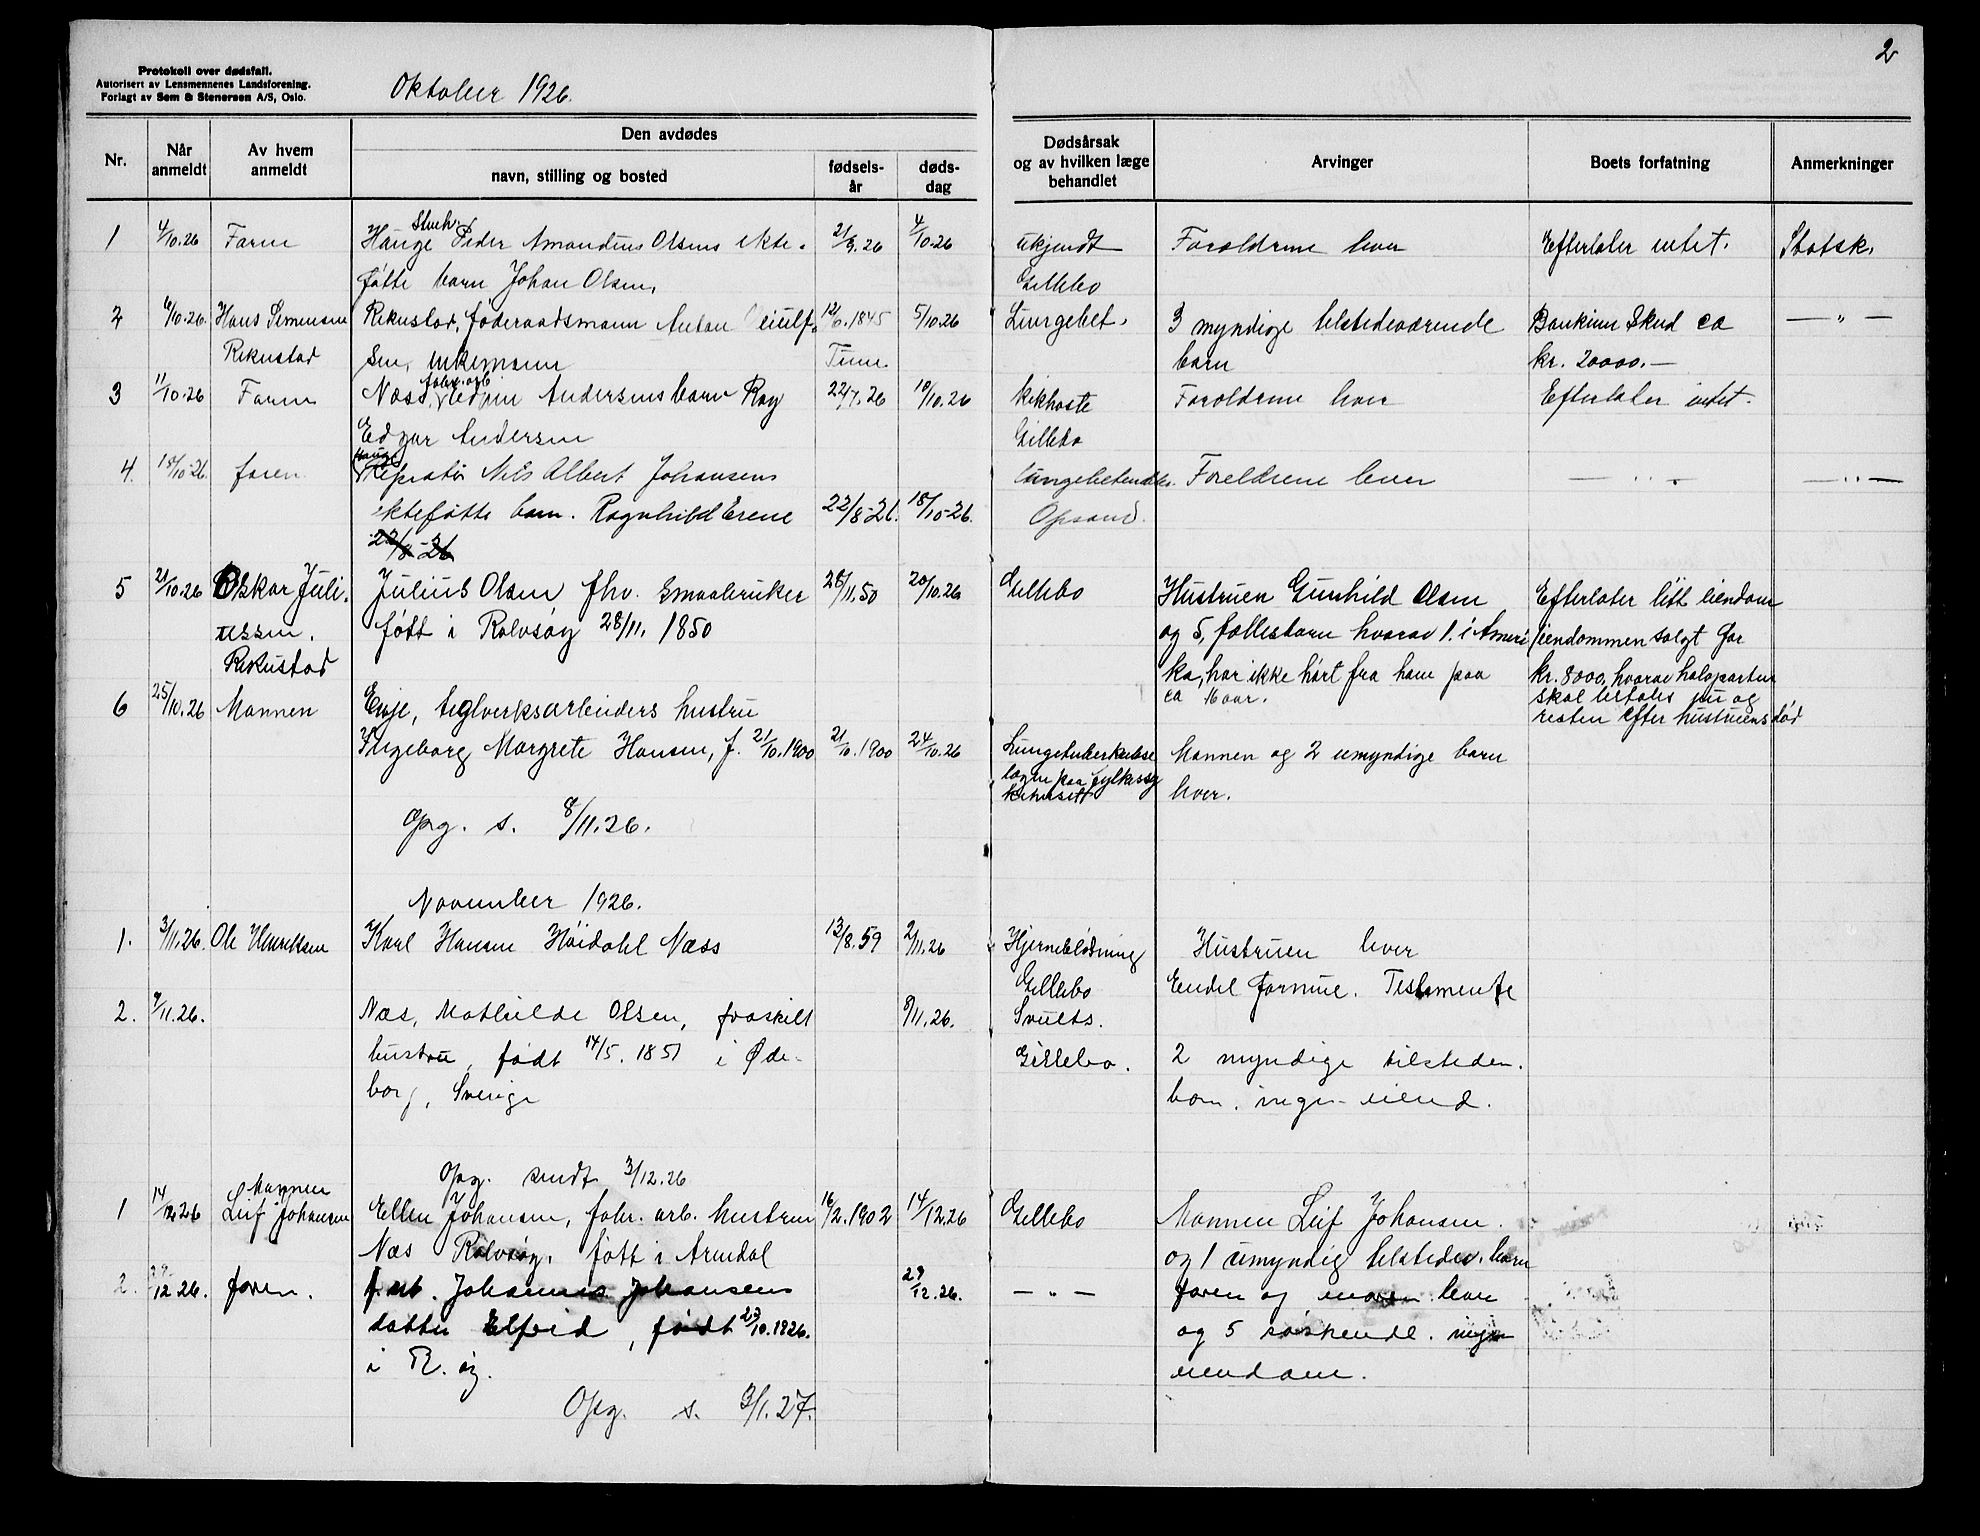 2
Protokoll over dødsfall.
Autorisert av Lensmennenes Landsforening.
Forlagt av Sem & Stenersen A/S, Oslo.
Oktober 1926.
Nr.
Når anmeldt
Av hvem anmeldt
Den avdødes
navn, stilling og bosted
fødsels-år
døds-dag
Dødsårsak og av hvilken læge behandlet
Arvinger
Boets forfatning
Anmerkninger
1 4/10.26 Faren Hauge Peder Amandus Olsens ekte- 21/9.26 4/10.26 ukjendt Foreldrene lever Efterlater intet. Statsk.
føtte barn Johan Olsen, Gillebo
2 6/10.26. Hans Simensen Rekustad, føderaadsmann Anton 1845 5/10.26 3 myndige tilstedeværende Bankinnskud ca — „ —
Rekustad sen, enkemann Tune barn kr. 20000.—
fabr. arb.
3 11/10.26 Faren Næss, Andersens barn Roy 22/7.26 10/10.26 Kikhoste Foreldrene lever Efterlater intet.
Edgar Andersen Gillebo
Hauge
4. 18/10-26. faren Nils Albert Johansens Foreldrene lever — „ — — „ —
ekteføtte barn. Ragnhild Erene 22/8-26. 18/10-26. Opsand.
22/8-26
5 21/10.26 Oskar Juli- Julius Olsen fhv. smaabruker 28/11.50 20/10.26 Gillebo Hustruen Gunhild Olsen Efterlater litt eiendom
ussen. født i Rolvsøy 28/11. 1850 og 5 fællesbarn hvorav 1 i Ameri- eiendommen solgt for
Rekustad ka, har ikke hørt fra ham paa kr. 8000, hvorav halvparten
ca 16 aar. skal betales nu og
resten efter hustruens død
6 25/10.26 Mannen Enje, teglverksarbeiders hustru
Ingeborg Margrete Hansen, f. 21/10.1900 21/10.1900 24/10.26 Lungetuberkulose Mannen og 2 umyndige barn
lægen paa fylkessy- lever.
kehuset
Opg. s. 8/11.26.
November 1926.
1. 3/11.26. Ole Henriksen Karl Hansen Høidahl Næss 13/8.59 2/11.26 Hjerneblødning Hustruen lever
Gillebo Endel formue. Testamente
2. 9/11.26. Næs, Mathilde Olsen, fraskilt 8/11.26. Svulst.
hustru, født 14/5. 1851 i Øde- Gillebo. 2 myndige tilsteden.
borg, Sverige barn. ingen eiend.
Opg. sendt 3/12.26
Mannen
1 14/12.26 Leif Johansen Ellen Johansen, fabr. arb. hustru 16/2.1902 14/12.26 Gillebo Mannen Leif Johansen.
Næs Rolvsøy. født i Arendal og 1 umyndig tilstedev. barn
2. 12.26. faren. f.arb. Johannes Johansens 29/12.26. — „ — faren og moren lever
datter Elfrid, født 23/10.1926. og 5 søskende. ingen
i R.øy. eiendom.
Opg. s. 3/1.27.